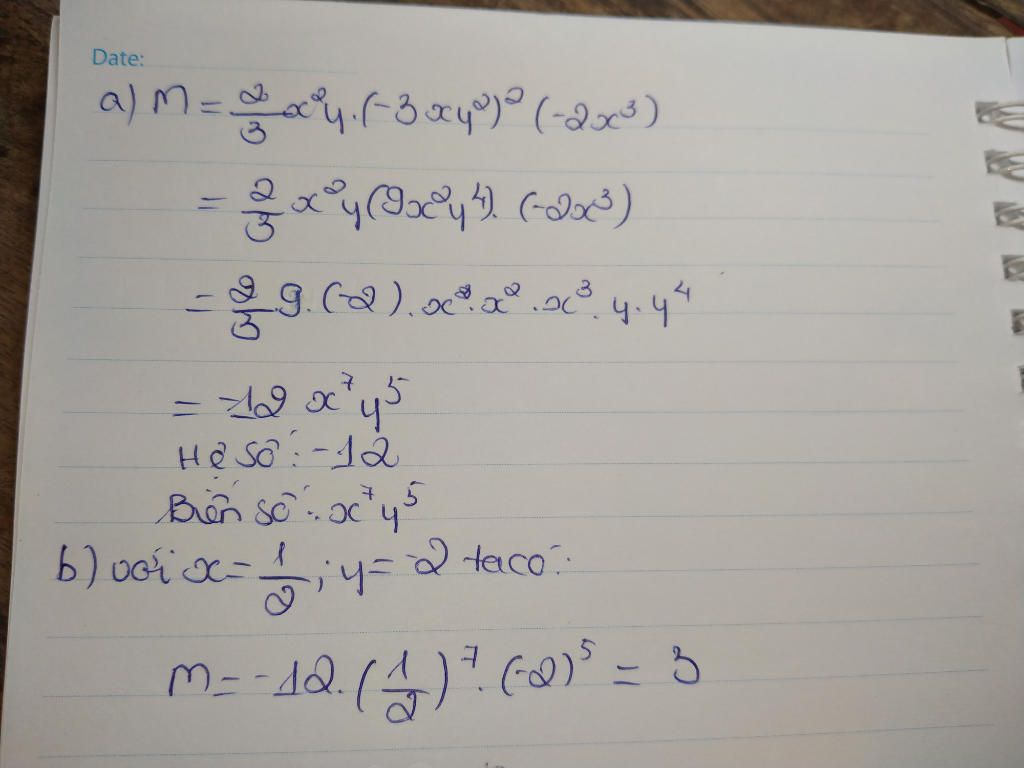 Date:
a) M = 2/3 x²y.(-3xy²)² (-2x³)
= 2/3 x²y(9x²y⁴). (-2x³)
= 2/3 .9.(-2).x².x².x³.y.y⁴
= -12 x⁷y⁵
Hệ số: -12
Biến số: x⁷y⁵
b) với x = 1/2; y = -2 ta có:
M = -12.(1/2)⁷.(-2)⁵ = 3